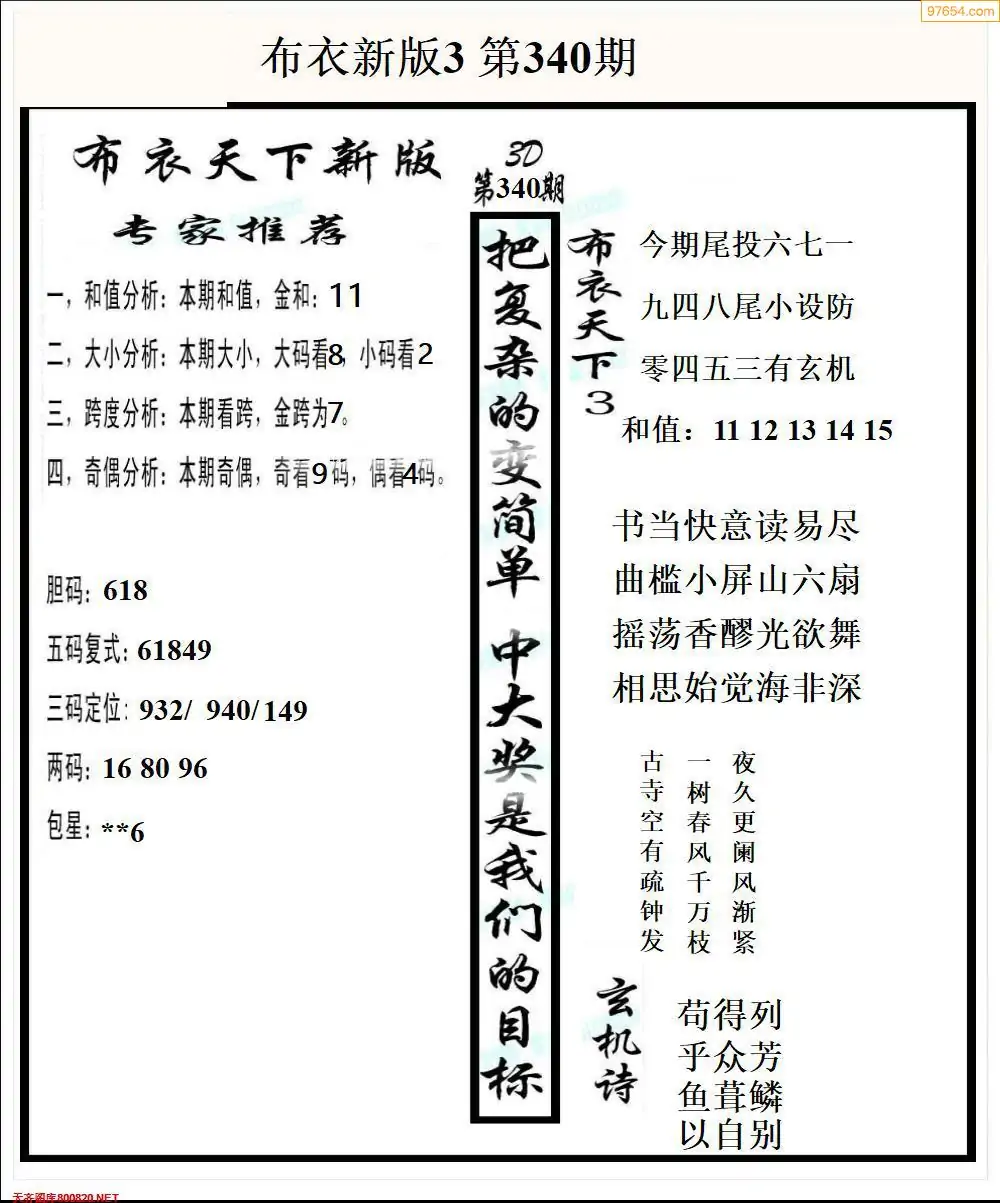 97654.com
布衣新版3 第340期
布衣天下新版
专家推荐
一，和值分析：本期和值，金和：11
二，大小分析：本期大小，大码看8，小码看2
三，跨度分析：本期看跨，金跨为7。
四，奇偶分析：本期奇偶，奇看9码，偶看4码。
胆码：618
五码复式：61849
三码定位：932/ 940/149
两码：16 80 96
包星：**6
3D
第340期
把复杂的变简单 中大奖是我们的目标
布衣天下3
今期尾投六七一
九四八尾小设防
零四五三有玄机
和值：11 12 13 14 15
书当快意读易尽
曲槛小屏山六扇
摇荡香醪光欲舞
相思始觉海非深
夜久更阑风渐紧
一树春风千万枝
古寺空有疏钟发
玄机诗
苟得列
乎众芳
鱼葺鳞
以自别
天齐图库800820.NET